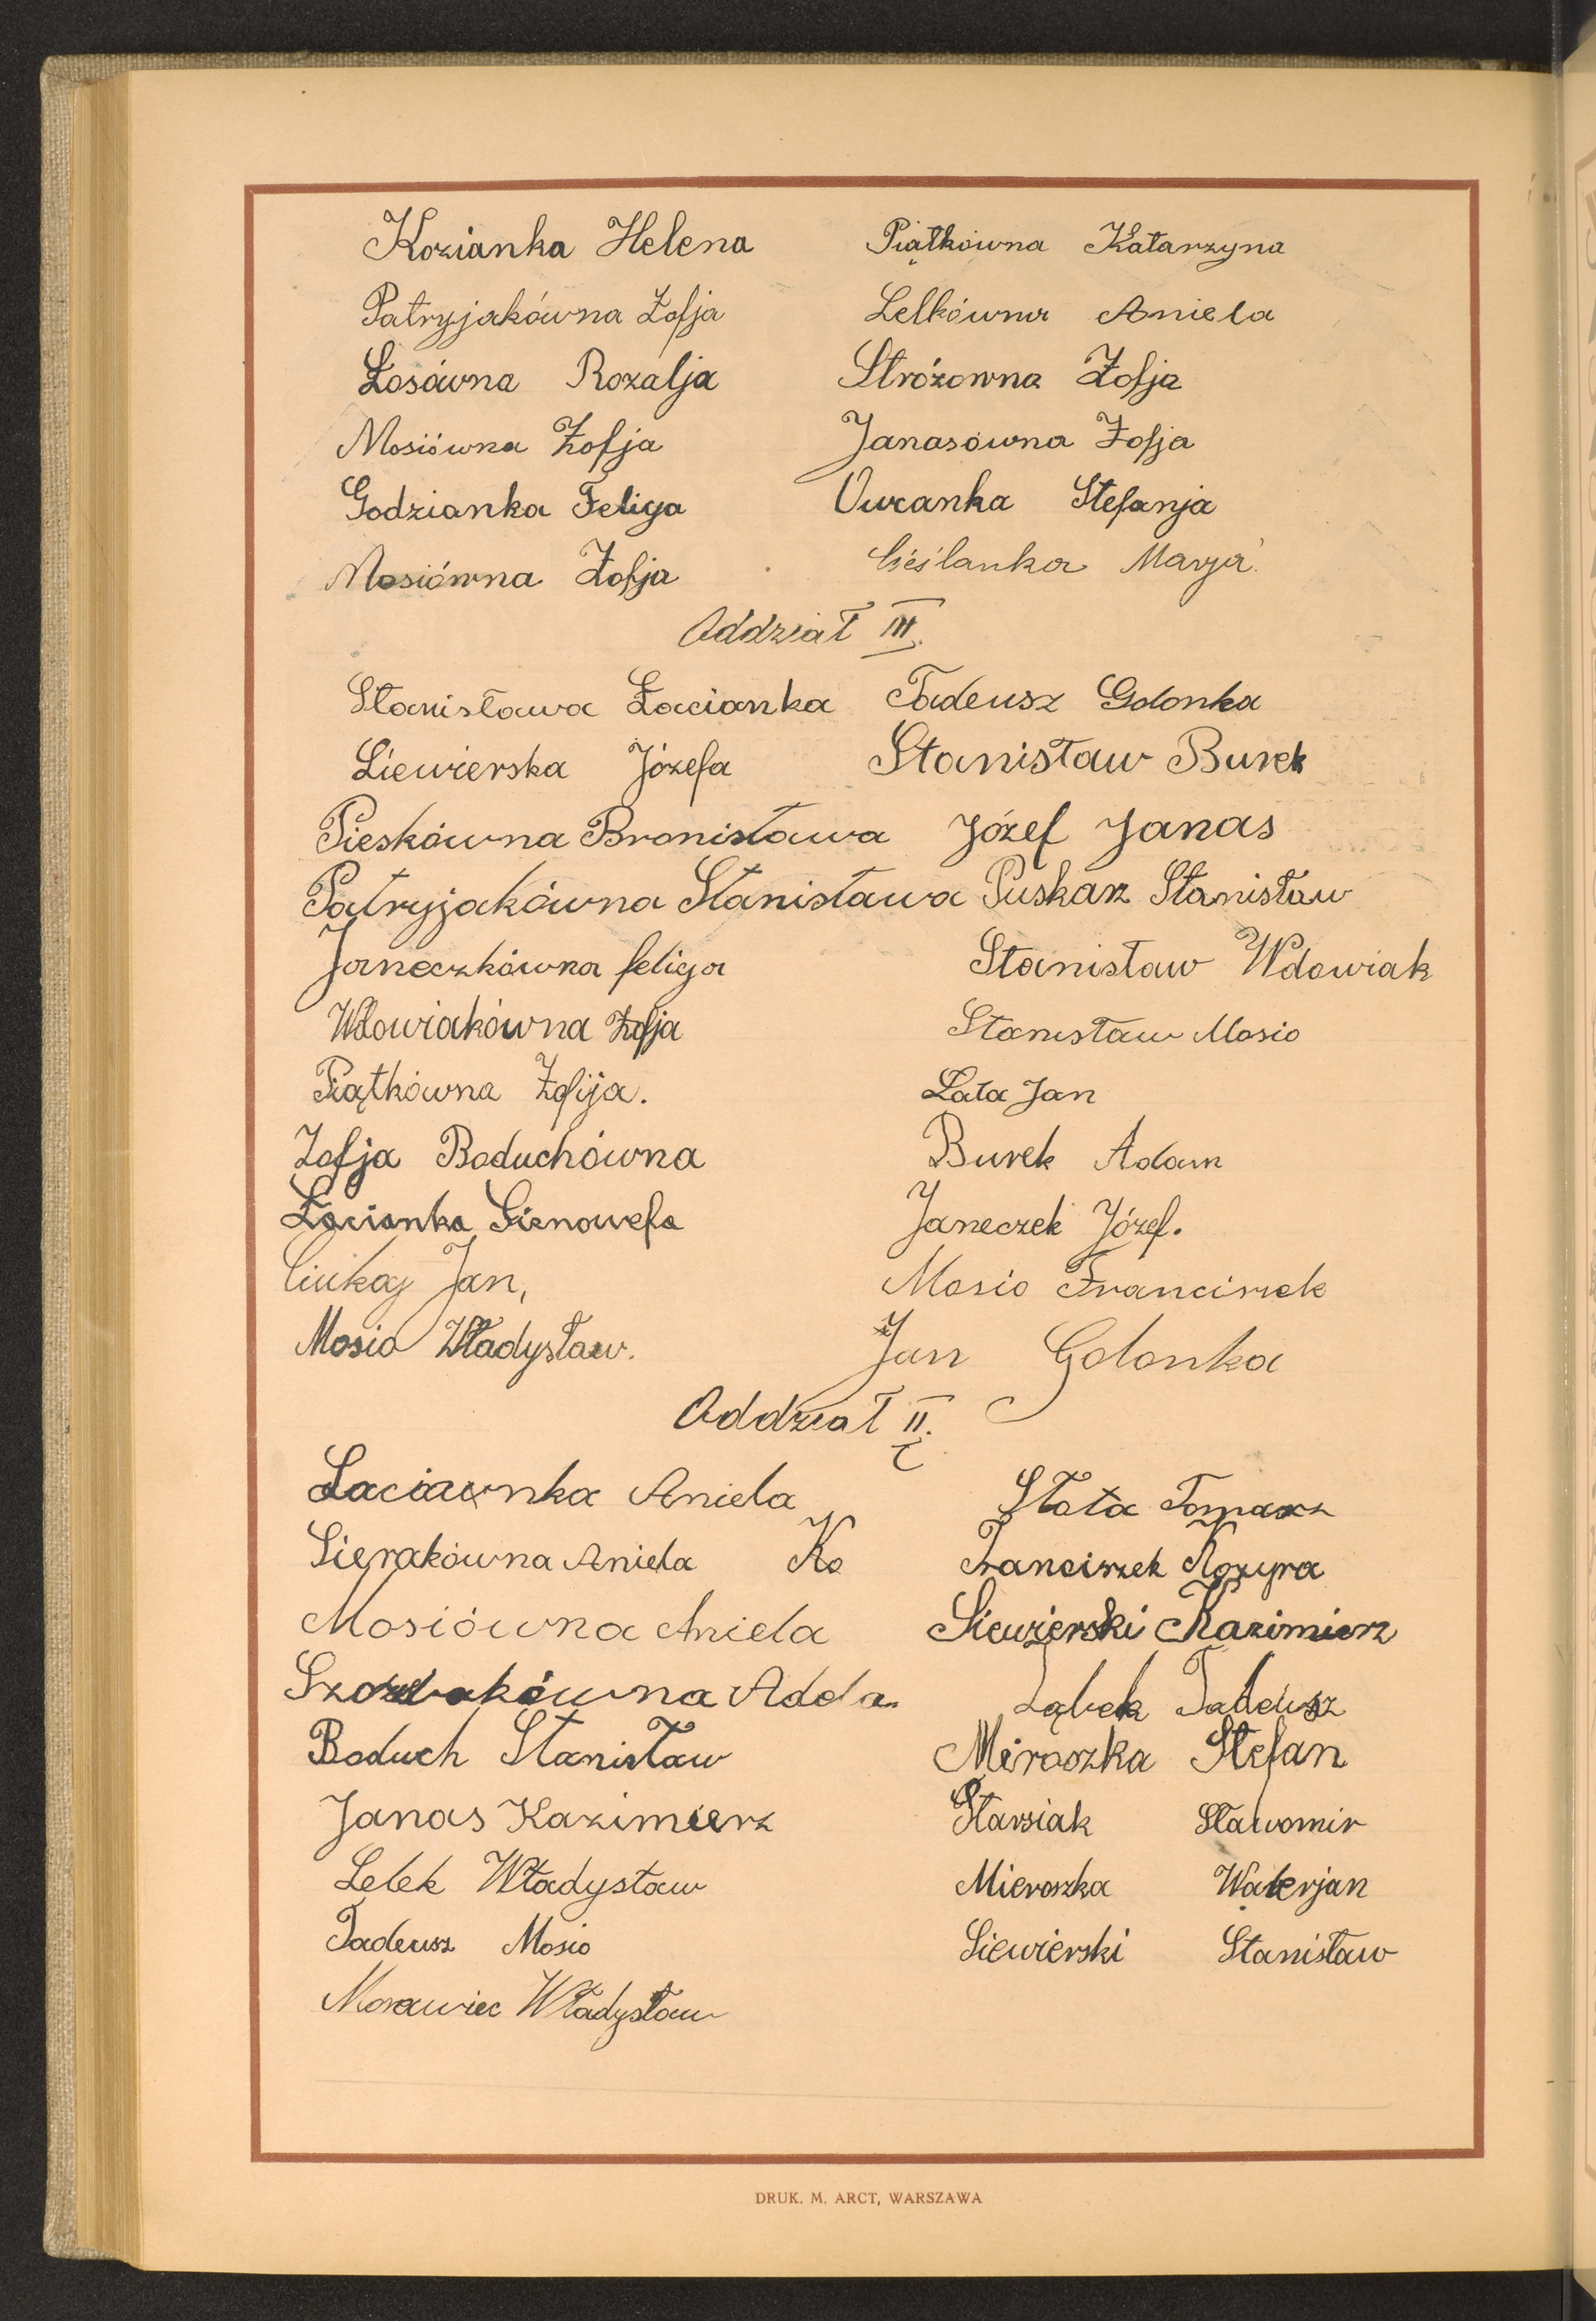 Kozianka Helena Piątkówna Katarzyna
Patryjakówna Zofja Lelkówna Aniela
Łosówna Rozalja Stróżowna Zofja
Mosiówna Zofja Janasówna Zofja
Godzianka Feliga Owcanka Stefanja
Mosiówna Zofja Cieślanka Marja
Oddział III.
Stanisława Łacianka Tadeusz Golonka
Siewierska Józefa Stanisław Burek
Pieskówna Bronisława Józef Janas
Patryjakówna Stanisława Puskarz Stanisław
Janeczkówna feliga Stanisław Wdowiak
Wdowiakówna Zofja Stanisław Mosio
Piątkówna Zofija. Łata Jan
Zofja Boduchówna Burek Adam
Łacianka Gienowefa Janeczek Józef.
Ciukaj Jan, Mosio Franciszek
Mosio Władysław. Jan Golonka
Oddział II.
Aniela Słota Tomasz
Sierakówna Aniela Ko Franciszek Kozyra
Mosiówna Aniela Siewierski Kazimierz
Adela Ząbek Tadeusz
Boduch Stanisław Miroszka Stefan
Janas Kazimierz Starsiak Sławomir
Lelek Władysław Mieroszka Walerjan
Tadeusz Mosio Siewierski Stanisław
Morawiec Władysław
DRUK. M. ARCT, WARSZAWA